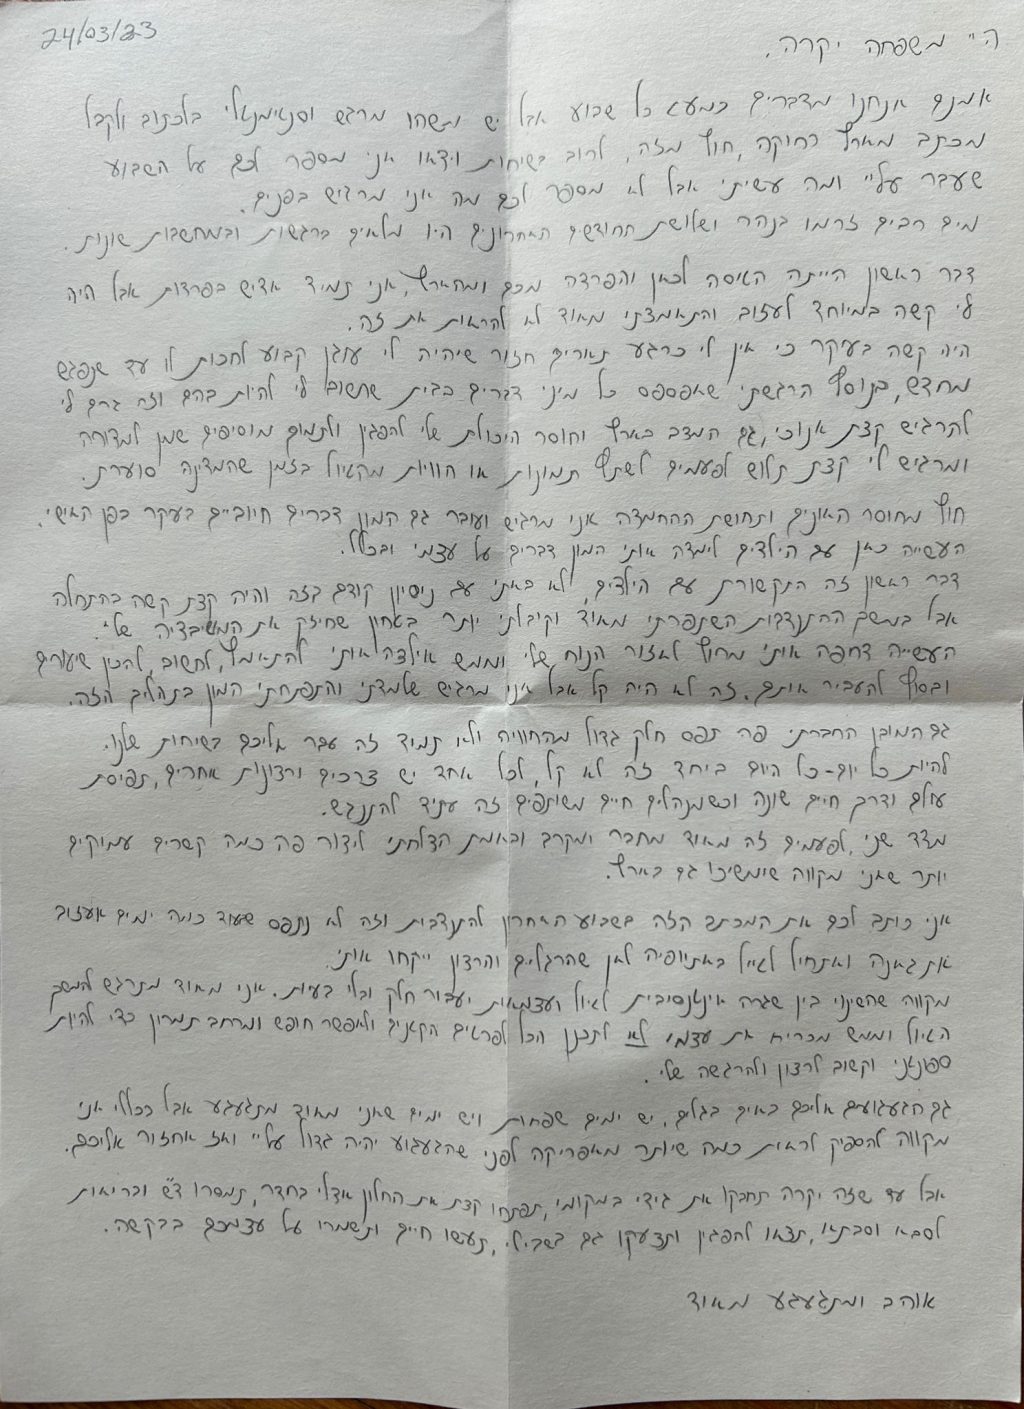 24/03/23
היי משפחה יקרה,
אמנם אנחנו מדברים כמעט כל שבוע אבל יש משהו מרגש וסנטימנטלי בלכתוב ולקבל
מכתב מארץ רחוקה, חוץ מזה, לרוב בשיחות וידאו אני מספר לכם על השבוע
שעבר עליי ומה עשיתי אבל לא מספר לכם מה אני מרגיש בפנים.
מים רבים זרמו בנהר ושלושת החודשים האחרונים היו מלאים ברגשות ובמחשבות שונות.
דבר ראשון הייתה הטיסה לכאן והפרדה מכם ומהארץ, אני תמיד אדיש בפרדות אבל היה
לי קשה במיוחד לעזוב והתאמצתי מאוד לא להראות את זה.
היה קשה בעיקר כי אין לי כרגע תאריך חזור שיהיה לי עוגן קבוע לחכות לו עד שנפגש
מחדש, בנוסף הרגשתי שאפספס כל מיני דברים בבית שחשוב לי להיות בהם וזה גרם לי
להרגיש קצת אנוכי, גם המצב בארץ וחוסר היכולת שלי להפגין ולתמוך מוסיפים שמן למדורה
ומרגיש לי קצת תלוש לפעמים לשתף תמונות או חוויות מהטיול בזמן שהמדינה סוערת.
חוץ מחוסר האונים ותחושת ההחמצה אני מרגיש ועובר גם המון דברים חיוביים בעקר בפן האישי.
העשייה כאן עם הילדים לימדה אותי המון דברים על עצמי ובכלל.
דבר ראשון זה התקשורת עם הילדים, לא באתי עם ניסיון קודם בזה והיה קצת קשה בהתחלה
אבל במשך ההתנדבות השתפרתי מאוד וקיבלתי יותר בטחון שחיזק את המוטיבציה שלי.
העשייה דחפה אותי מחוץ לאזור הנוח שלי וממש אילצה אותי להתאמץ, לחשוב, להכין שיעורים
ובסוף להעביר אותם. זה לא היה קל אבל אני מרגיש שלמדתי והתפתחתי המון בתהליך הזה.
גם המובן החברתי פה תפס חלק גדול מהחוויה ולא תמיד זה עבר אליכם בשיחות שלנו.
להיות כל יום-כל היום ביחד זה לא קל, לכל אחד יש צרכים ורצונות אחרים, תפיסת
עולם ודרך חיים שונה וכשמנהלים חיים משותפים זה עתיד להתנגש.
מצד שני, לפעמים זה מאוד מחבר ומקרב ובאמת הצלחתי ליצור פה כמה קשרים עמוקים
יותר שאני מקווה שימשיכו גם בארץ.
אני כותב לכם את המכתב הזה בשבוע האחרון להתנדבות וזה לא נתפס שעוד כמה ימים אעזוב
את גאנה ואתחיל לטייל באתיופיה לאן שהרגליים והרצון ייקחו אותי.
מקווה שהשינוי בין שגרה אינטנסיבית לטיול ועצמאות יעבור חלק ובלי בעיות. אני מאוד מתרגש להמשך
הטיול וממש מכריח את עצמי לא לתכנן הכל לפרטים הקטנים ולאפשר חופש ומרחב תמרון כדי להיות
ספונטני וקשוב לרצון ולהרגשה שלי.
גם הגעגועים אליכם באים בגלים, יש ימים שפחות ויש ימים שאני מאוד מתגעגע אבל ככללי אני
מקווה להספיק לראות כמה שיותר מאפריקה לפני שהגעגוע יהיה גדול עליי ואז אחזור אליכם.
אבל עד שזה יקרה תחבקו את גידי במקומי, תפתחו קצת את החלון אצלי בחדר, תמסרו ד"ש ובריאות
לסבא וסבתא, תצאו להפגין ותצעקו גם בשבילי, תעשו חיים ותשמרו על עצמכם בבקשה.
אוהב ומתגעגע מאוד